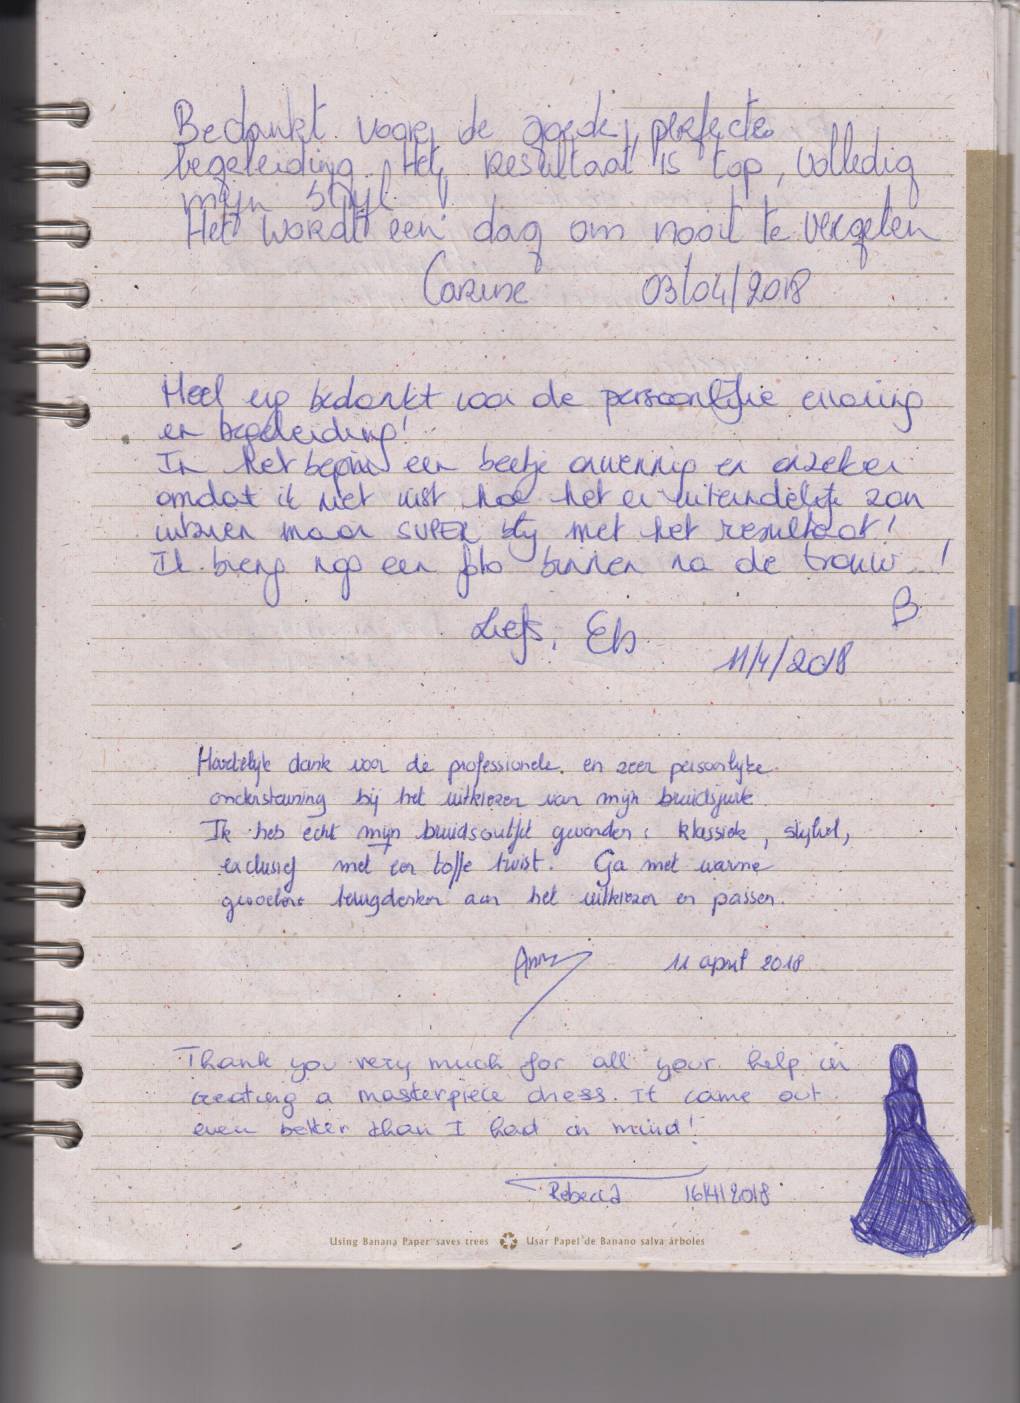 Bedankt voor de goede, perfecte
begeleiding. Het resultaat is top, volledig
mijn stijl.
Het wordt een dag om nooit te vergeten
Carine 03/04/2018
Heel erg bedankt voor de persoonlijke ervaring
en begeleiding!
In het begin een beetje onwennig en onzeker
omdat ik niet wist hoe het er uiteindelijk zou
uitzien maar SUPER blij met het resultaat!
Ik breng nog een foto binnen na de trouw !
Liefs,
11/4/2018
Hartelijke dank voor de professionele en zeer persoonlijke
ondersteuning bij het uitkiezen van mijn bruidsjurk
Ik heb echt mijn bruidsoutfit gevonden: klassiek, stijlvol,
exclusief met een toffe twist. Ga met warme
gevoelens terugdenken aan het uitkiezen en passen.
11 april 2018
Thank you very much for all your help in
creating a masterpiece dress. It came out
even better than I had in mind!
Rebecca 16/4/2018
Using Banana Paper saves trees Usar Papel de Banano salva árboles